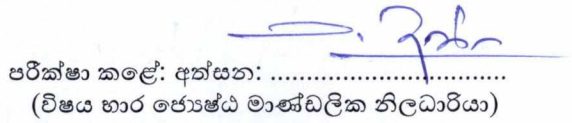 පරීක්ෂා කළේ: අත්සන: ..................................
(විෂය භාර ජ්‍යෙෂ්ඨ මාණ්ඩලික නිලධාරියා)